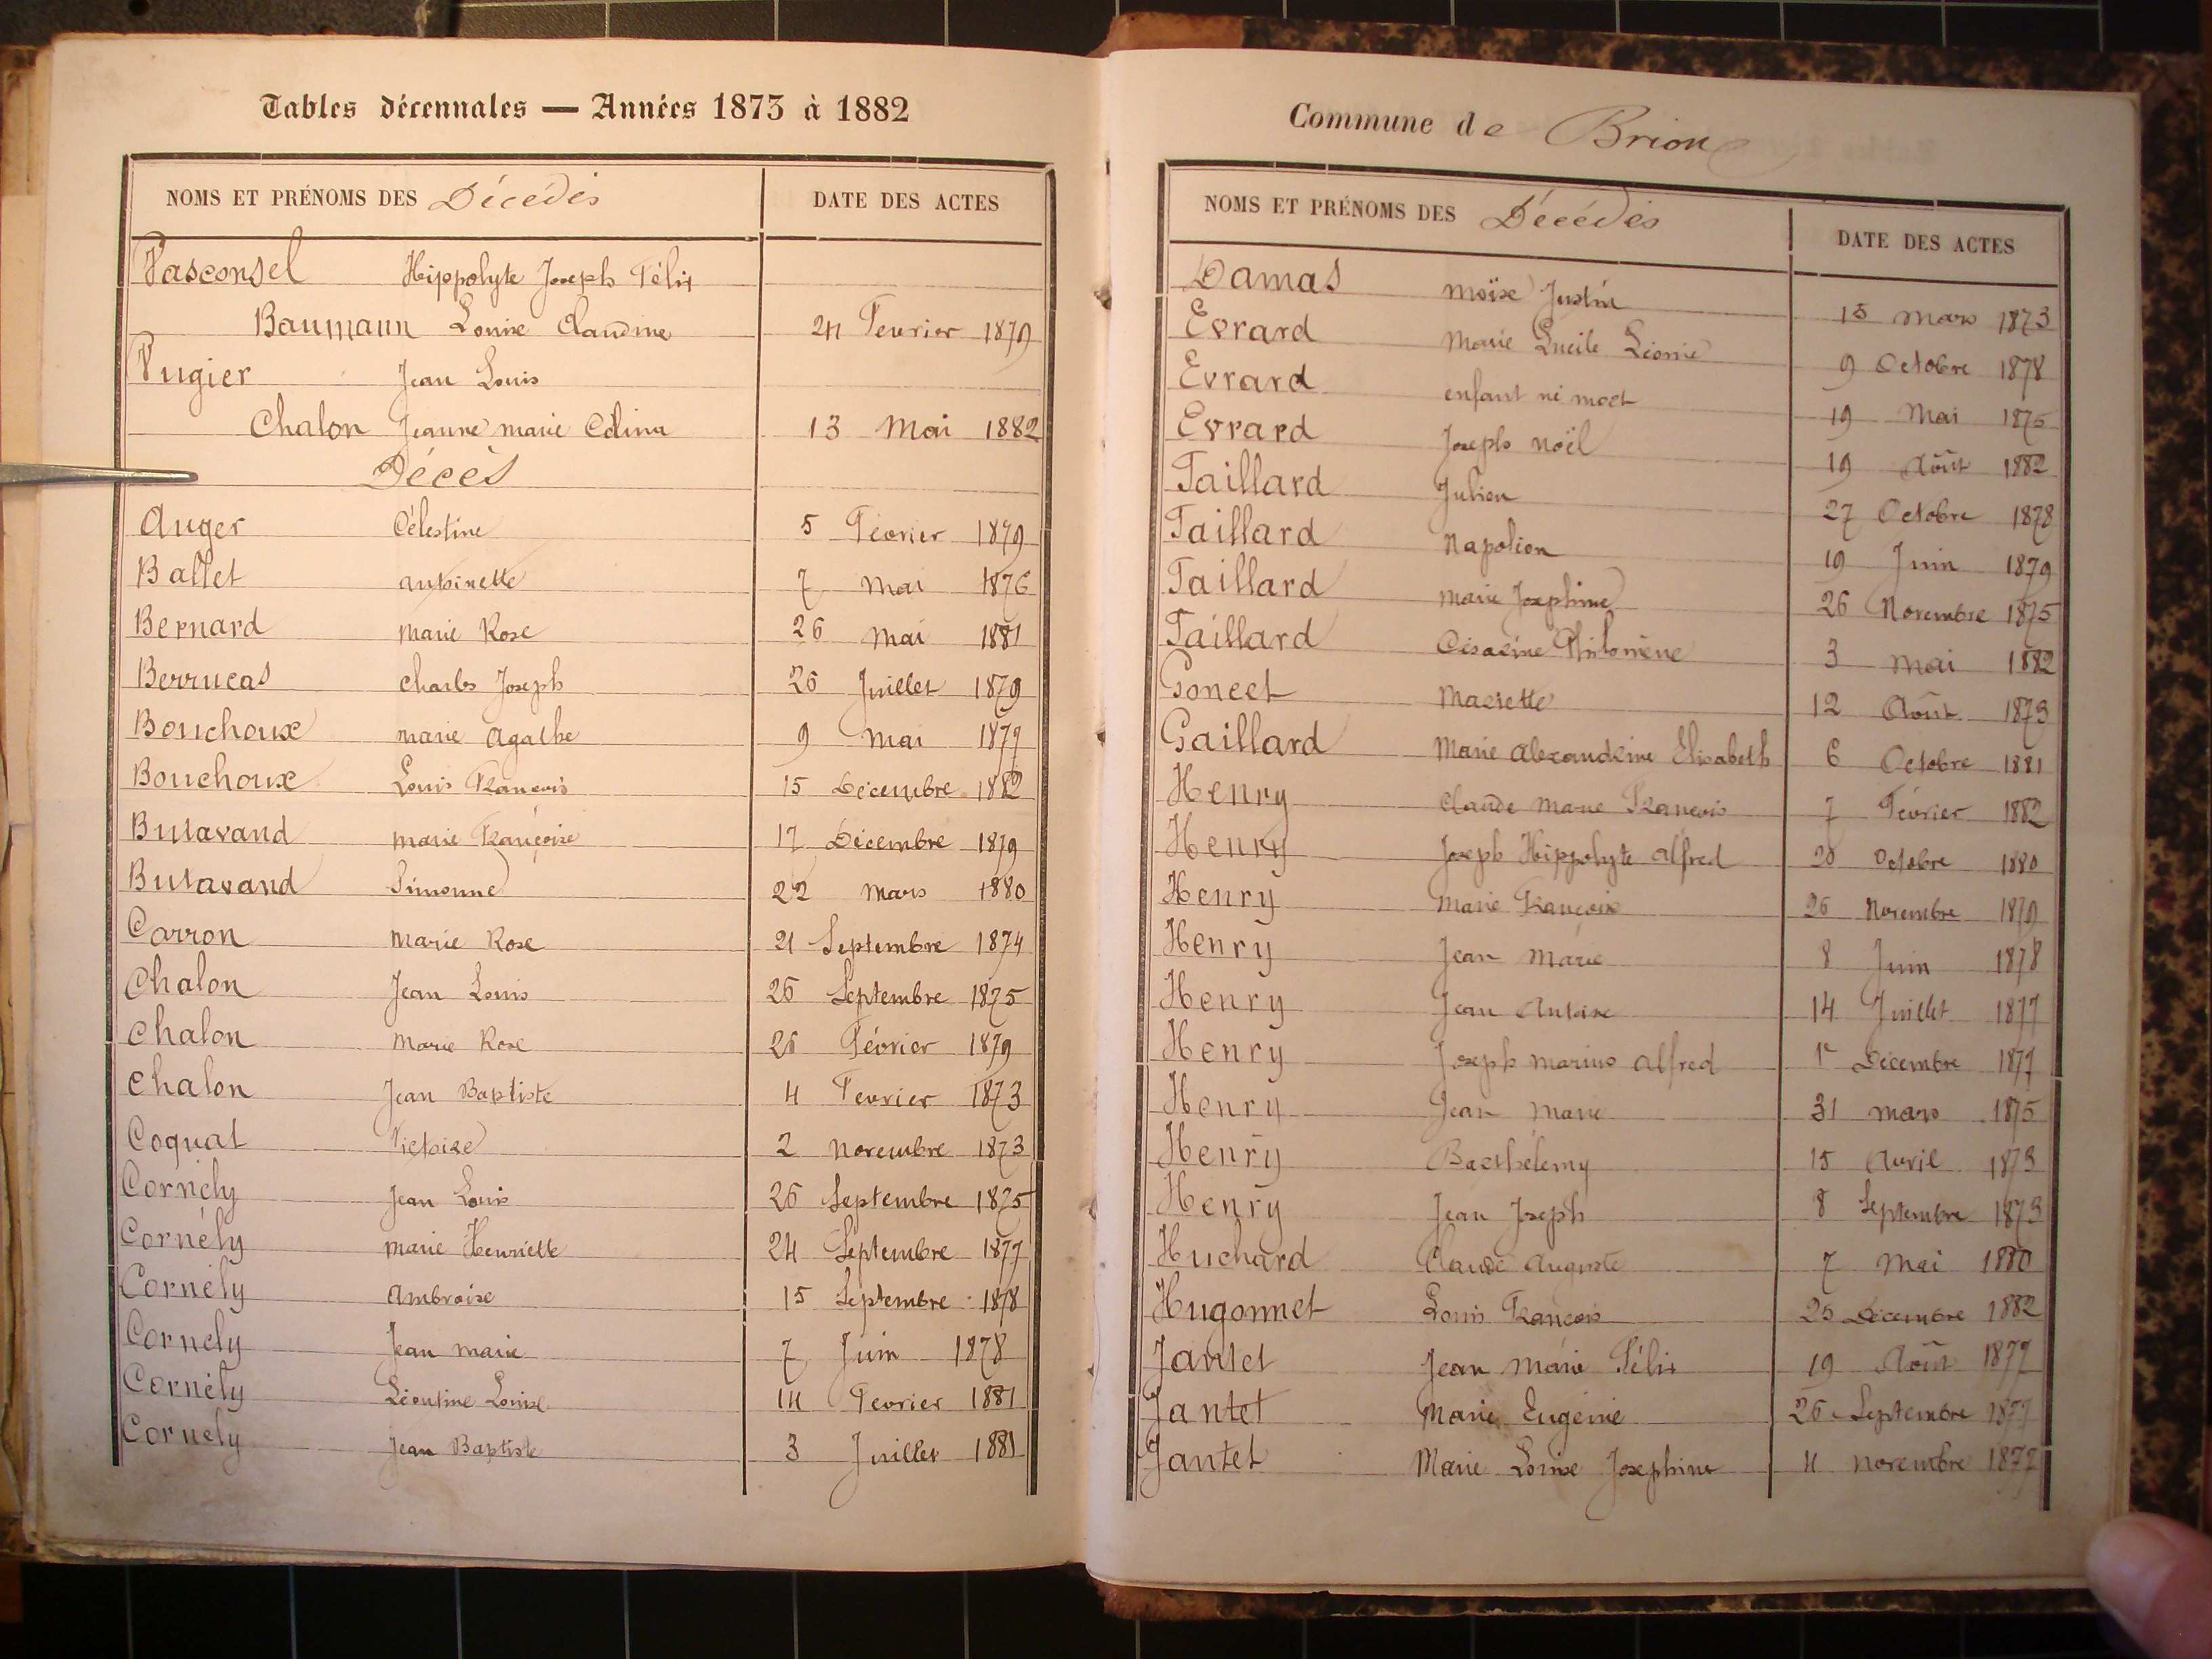 Tables décennales — Années 1873 à 1882
NOMS ET PRÉNOMS DES Décédés DATE DES ACTES
Vasconsel Hippolyte Joseph Félix
Baumann Louise Claudine 24 Fevrier 1879
Vugier Jean Louis
Chalon Jeanne marie Célina 13 Mai 1882
Décès
Auger Célestine 5 Février 1879
Ballet antoinette 7 Mai 1876
Bernard Marie Rose 26 Mai 1881
Berrucas Charles Joseph 26 Juillet 1879
Bouchoux marie Agathe 9 Mai 1877
Bouchoux Louis François 15 Décembre 1882
Butavand Marie Françoise 17 Décembre 1879
Butavand Simonne 22 Mars 1880
Carron Marie Rose 21 Septembre 1874
Chalon Jean Louis 26 Septembre 1875
Chalon Marie Rose 26 Février 1879
Chalon Jean Baptiste 4 Fevrier 1873
Coquat Victoire 2 Novembre 1873
Cornély Jean Louis 26 Septembre 1875
Cornély Marie Henriette 24 Septembre 1877
Cornély Ambroise 15 Septembre 1878
Cornely Jean marie 7 Juin 1878
Cornély Léontine Louise 14 Fevrier 1881
Cornely Jean Baptiste 3 Juillet 1881
Commune de Brion
NOMS ET PRÉNOMS DES Décédés DATE DES ACTES
Damas Moïse Justin 15 Mars 1873
Evrard Marie Lucile Léonie 9 Octobre 1878
Evrard enfant né mort 19 Mai 1875
Evrard Joseph Noël 19 Août 1882
Faillard Julien 27 Octobre 1878
Faillard Napoléon 19 Juin 1879
Faillard Marie Joséphine 26 Novembre 1875
Faillard Césarine Philomène 3 Mai 1882
Goncet Mariette 12 Août 1873
Gaillard Marie Alexandrine Elisabeth 6 Octobre 1881
Henry Claude Marie François 7 Février 1882
Henry Joseph Hippolyte Alfred 20 Octobre 1880
Henry Marie Françoise 26 Novembre 1879
Henry Jean Marie 8 Juin 1878
Henry Jean Antoine 14 Juillet 1877
Henry Joseph Marius Alfred 1r Décembre 1877
Henry Jean Marie 31 Mars 1875
Henry Barthélemy 15 Avril 1873
Henry Jean Joseph 8 Septembre 1873
Huchard Claude Auguste 7 Mai 1880
Hugonnet Louis François 25 Décembre 1882
Jantet Jean Marie Félix 19 Août 1877
Jantet Marie Eugénie 26 Septembre 1877
Jantet Marie Louise Joséphine 4 Novembre 1877